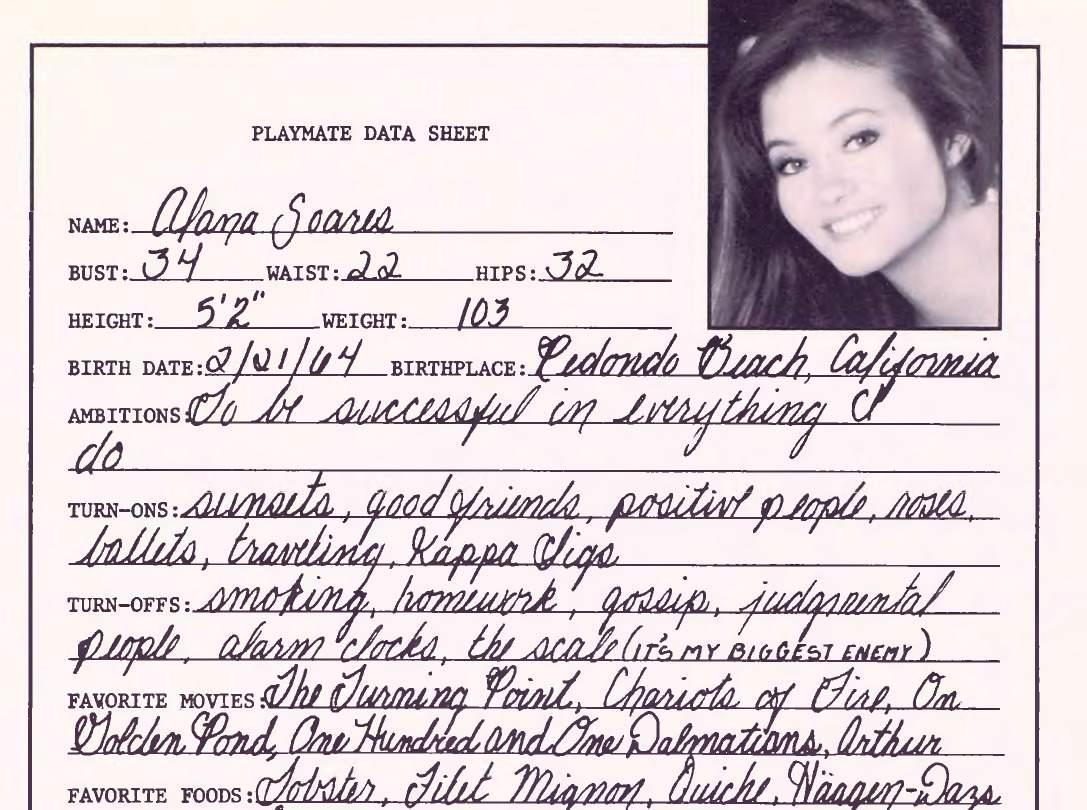 PLAYMATE DATA SHEET
NAME: Alana Soares
BUST: 34 WAIST: 22 HIPS: 32
HEIGHT: 5'2" WEIGHT: 103
BIRTH DATE: 2/21/64 BIRTHPLACE: Redondo Beach, California
AMBITIONS: To be successful in everything I
do
TURN-ONS: sunsets, good friends, positive people, roses,
ballets, traveling, Kappa Sigs
TURN-OFFS: smoking, homework, gossip, judgmental
people, alarm clocks, the scale (IT'S MY BIGGEST ENEMY)
FAVORITE MOVIES: The Turning Point, Chariots of Fire, On
Golden Pond, One Hundred and One Dalmatians, Arthur
FAVORITE FOODS: Lobster, Filet Mignon, Quiche, Häagen-Dazs